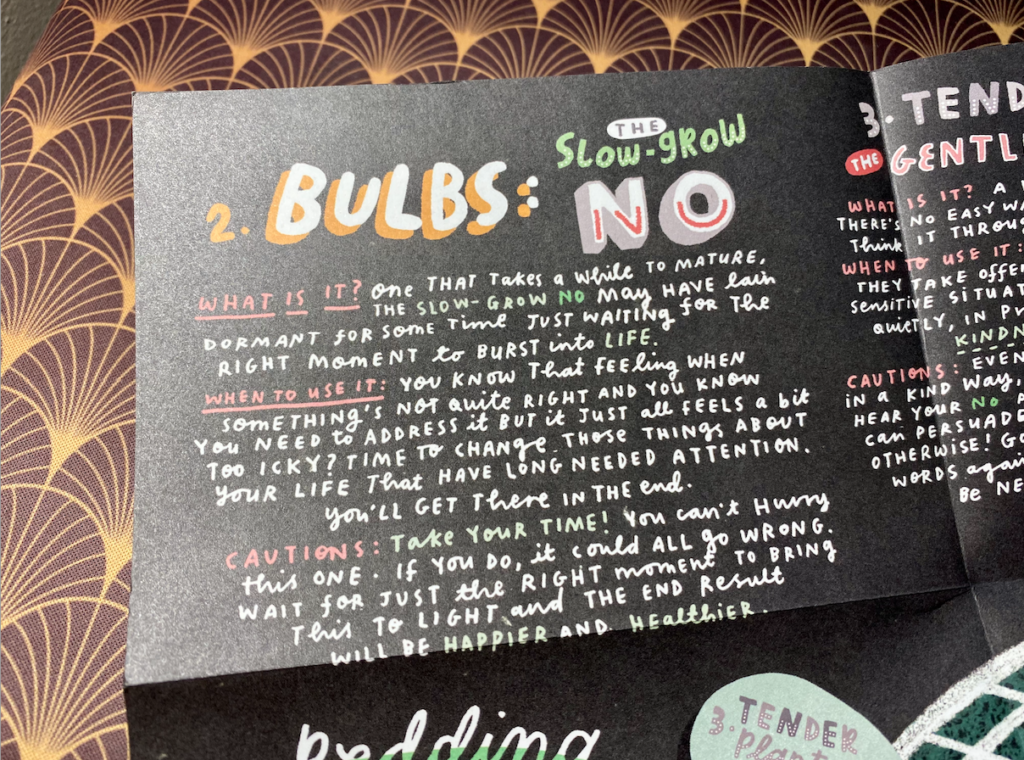 2. BULBS: THE
SLOW-GROW
NO
WHAT IS IT? ONE THAT TAKES A WHILE TO MATURE,
THE SLOW-GROW NO MAY HAVE LAIN
DORMANT FOR SOME TIME JUST WAITING FOR THE
RIGHT MOMENT TO BURST INTO LIFE.
WHEN TO USE IT: YOU KNOW THAT FEELING WHEN
SOMETHING'S NOT QUITE RIGHT AND YOU KNOW
YOU NEED TO ADDRESS IT BUT IT JUST ALL FEELS A BIT
TOO ICKY? TIME TO CHANGE THOSE THINGS ABOUT
YOUR LIFE THAT HAVE LONG NEEDED ATTENTION.
YOU'LL GET THERE IN THE END.
CAUTIONS: TAKE YOUR TIME! YOU CAN'T HURRY
THIS ONE. IF YOU DO, IT COULD ALL GO WRONG.
WAIT FOR JUST THE RIGHT MOMENT TO BRING
THIS TO LIGHT AND THE END RESULT
WILL BE HAPPIER AND HEALTHIER.
3. TEND
THE GENTL
WHAT IS IT? A
THERE'S NO EASY WA
THINK IT THROUG
WHEN TO USE IT:
THEY TAKE OFFE
SENSITIVE SITUAT
QUIETLY, IN
KINDN
CAUTIONS: EVEN
IN A KIND WAY,
HEAR YOUR NO
CAN PERSUADE
OTHERWISE! GO
WORDS AGAI
BE NE
Bedding
3. TENDER
plant